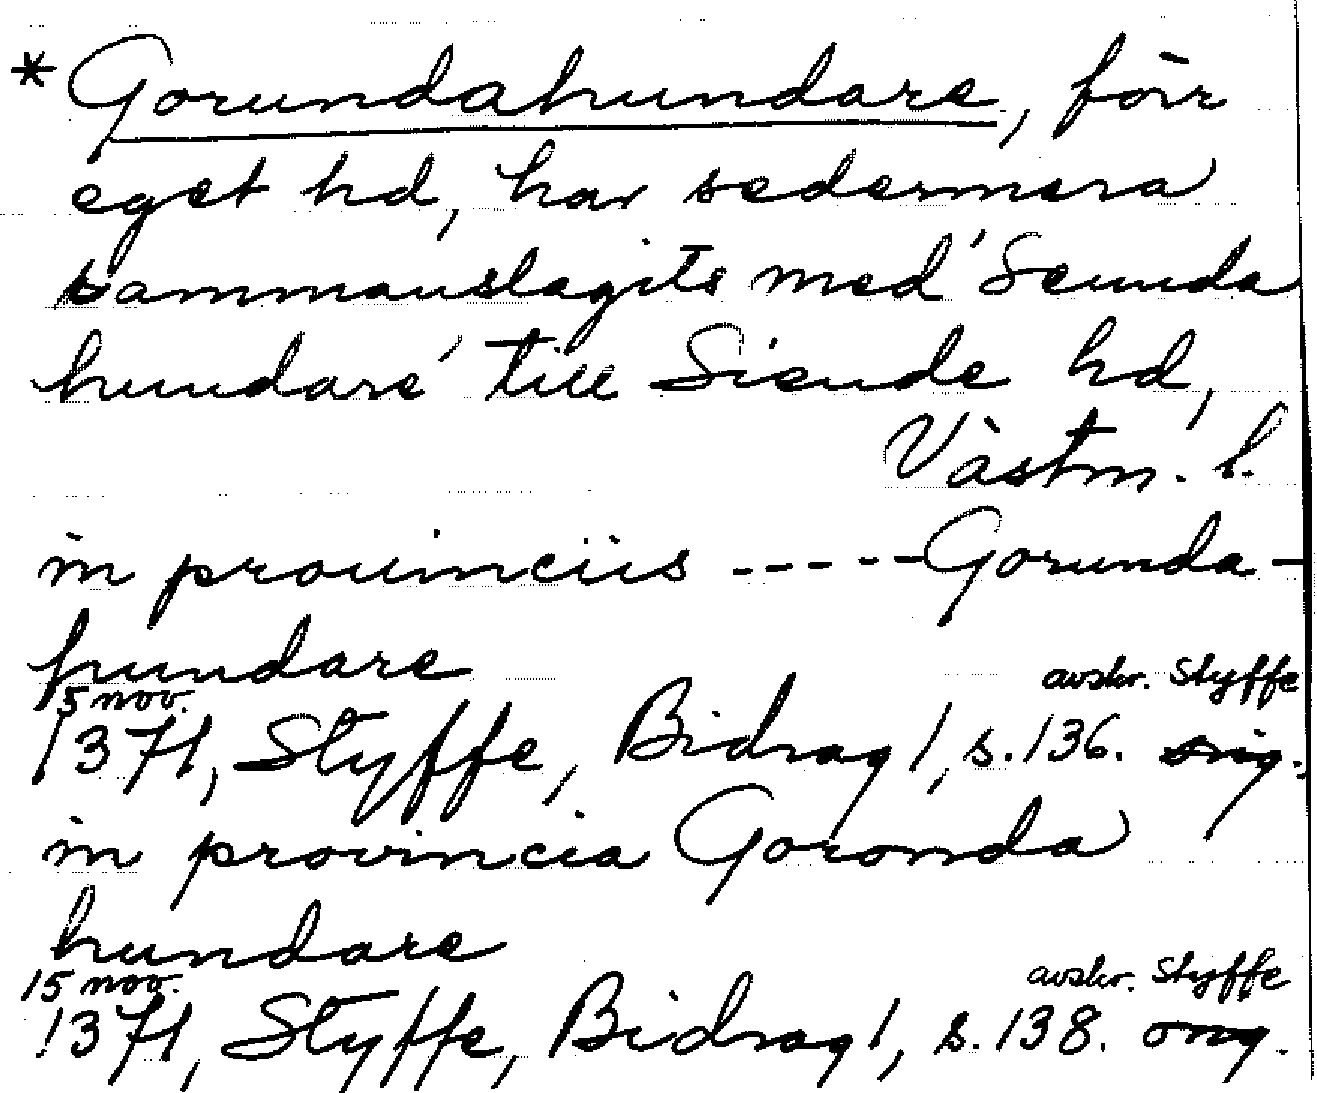 * Gorundahundare, förr
eget hd, har sedermera
sammanslagits med 'Seunda
hundare' till Siende hd,
Västm. l.
in prouinciis ----- Gorunda-
hundare
15 nov. avskr. Styffe
1371, Styffe, Bidrag 1, s. 136. orig.
in provincia Goronda
hundare
15 nov. avskr. Styffe
1371, Styffe, Bidrag 1, s. 138. orig.